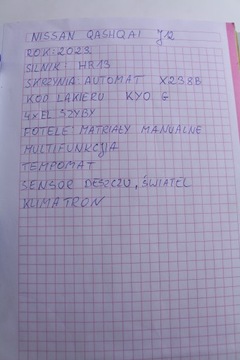 NISSAN QASHQAI J12
ROK: 2023
SILNIK: HR13
SKRZYNIA: AUTOMAT X23BB
KOD LAKIERU KYO G
4xEL SZYBY
FOTELE: MATRIAŁY MANUALNE
MULTIFUNKCJA
TEMPOMAT
SENSOR DESZCZU, ŚWIATEL
KLIMATRON